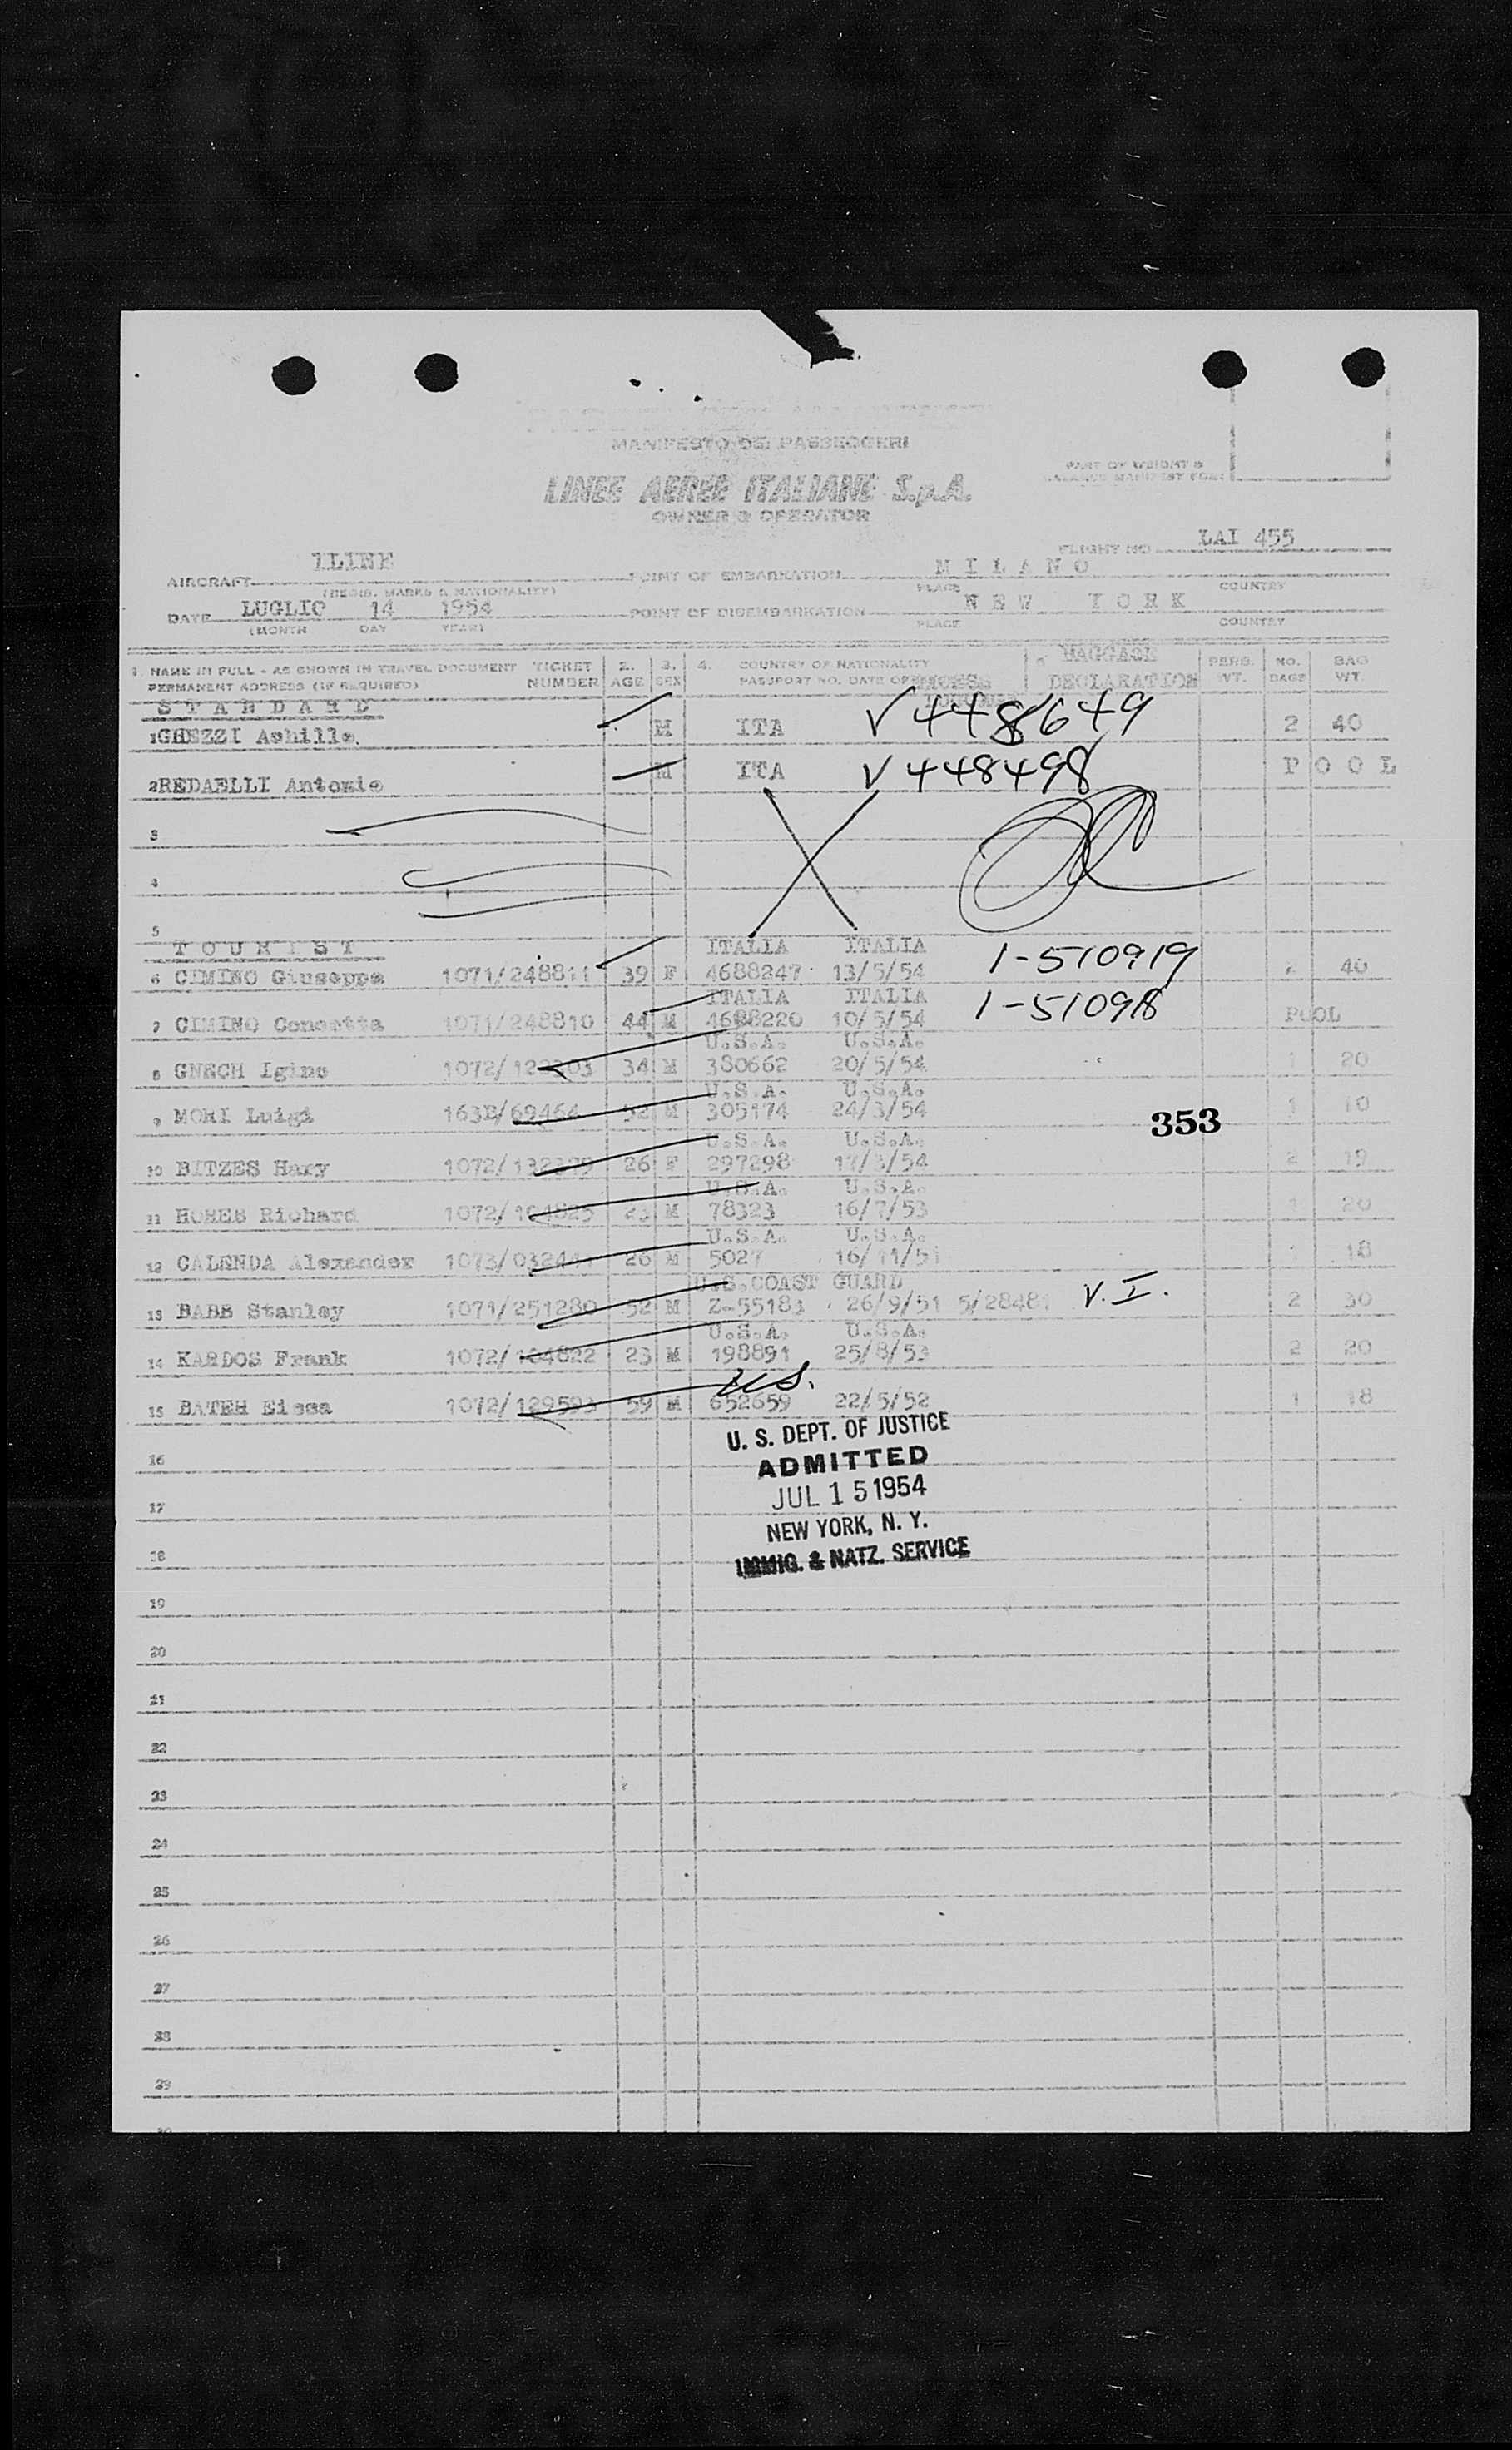 MANIFESTO DEI PASSEGGERI
LINEE AEREE ITALIANE S.p.A.
OWNER & OPERATOR
PART OF WEIGHT &
FLIGHT NO. LAI 455
AIRCRAFT ILINE
(REGIS. MARKS & NATIONALITY)
POINT OF EMBARKATION MILANO
PLACE COUNTRY
DATE LUGLIO 14 1954
(MONTH DAY YEAR)
POINT OF DISEMBARKATION NEW YORK
PLACE COUNTRY
1. NAME IN FULL - AS SHOWN IN TRAVEL DOCUMENT TICKET NUMBER 2. AGE 3. SEX 4. COUNTRY OF NATIONALITY BAGGAGE DECLARATION PERS. WT. NO. BAGS BAG WT.
PERMANENT ADDRESS (IF REQUIRED) PASSPORT NO. DATE OF
STANDARD
1 GHEZZI Achille M ITA V448649 2 40
2 REDAELLI Antonio M ITA V448498 POOL
3
4
5
TOURIST
ITALIA ITALIA
6 CIMINO Giuseppa 1071/248811 39 F 4688247 13/5/54 1-510919 2 40
ITALIA ITALIA
7 CIMINO Concetta 1071/248810 44 M 4688220 10/5/54 1-510918 POOL
U.S.A. U.S.A.
8 GNECH Igino 1072/ 34 M 380662 20/5/54 1 20
U.S.A. U.S.A.
9 MORI Luigi 163B/69464 52 M 305174 24/3/54 1 10
353
U.S.A. U.S.A.
10 BITZES Hary 1072/ 26 F 297298 17/3/54 2 19
U.S.A. U.S.A.
11 Richard 1072/164825 23 M 78323 16/7/53 1 20
U.S.A. U.S.A.
12 CALENDA Alexander 1073/ 26 M 5027 16/11/51 1 18
U.S.COAST GUARD
13 BABB Stanley 1071/251280 52 M Z-55183 26/9/51 5/28481 V.I. 2 30
U.S.A. U.S.A.
14 KARDOS Frank 1072/164822 23 M 198891 25/8/53 2 20
U.S.
15 BATEH Eissa 1072/129593 59 M 652659 22/5/52 1 18
U. S. DEPT. OF JUSTICE
ADMITTED
JUL 15 1954
NEW YORK, N. Y.
IMMIG. & NATZ. SERVICE
16
17
18
19
20
21
22
23
24
25
26
27
28
29